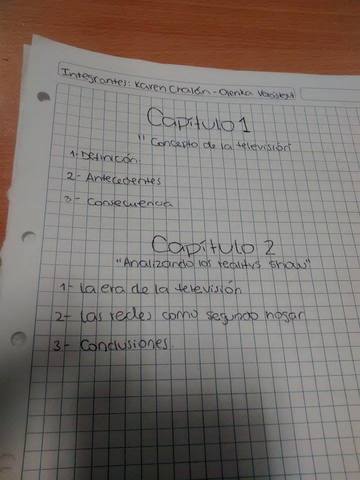 Integrantes: Karen Chalén -
Capítulo 1
"Concepto de la televisión
1- Definición.
2- Antecedentes
3- Consecuencia
Capítulo 2
"Analizando los realitys show"
1- La era de la televisión
2- Las redes como segundo hogar
3- Conclusiones.